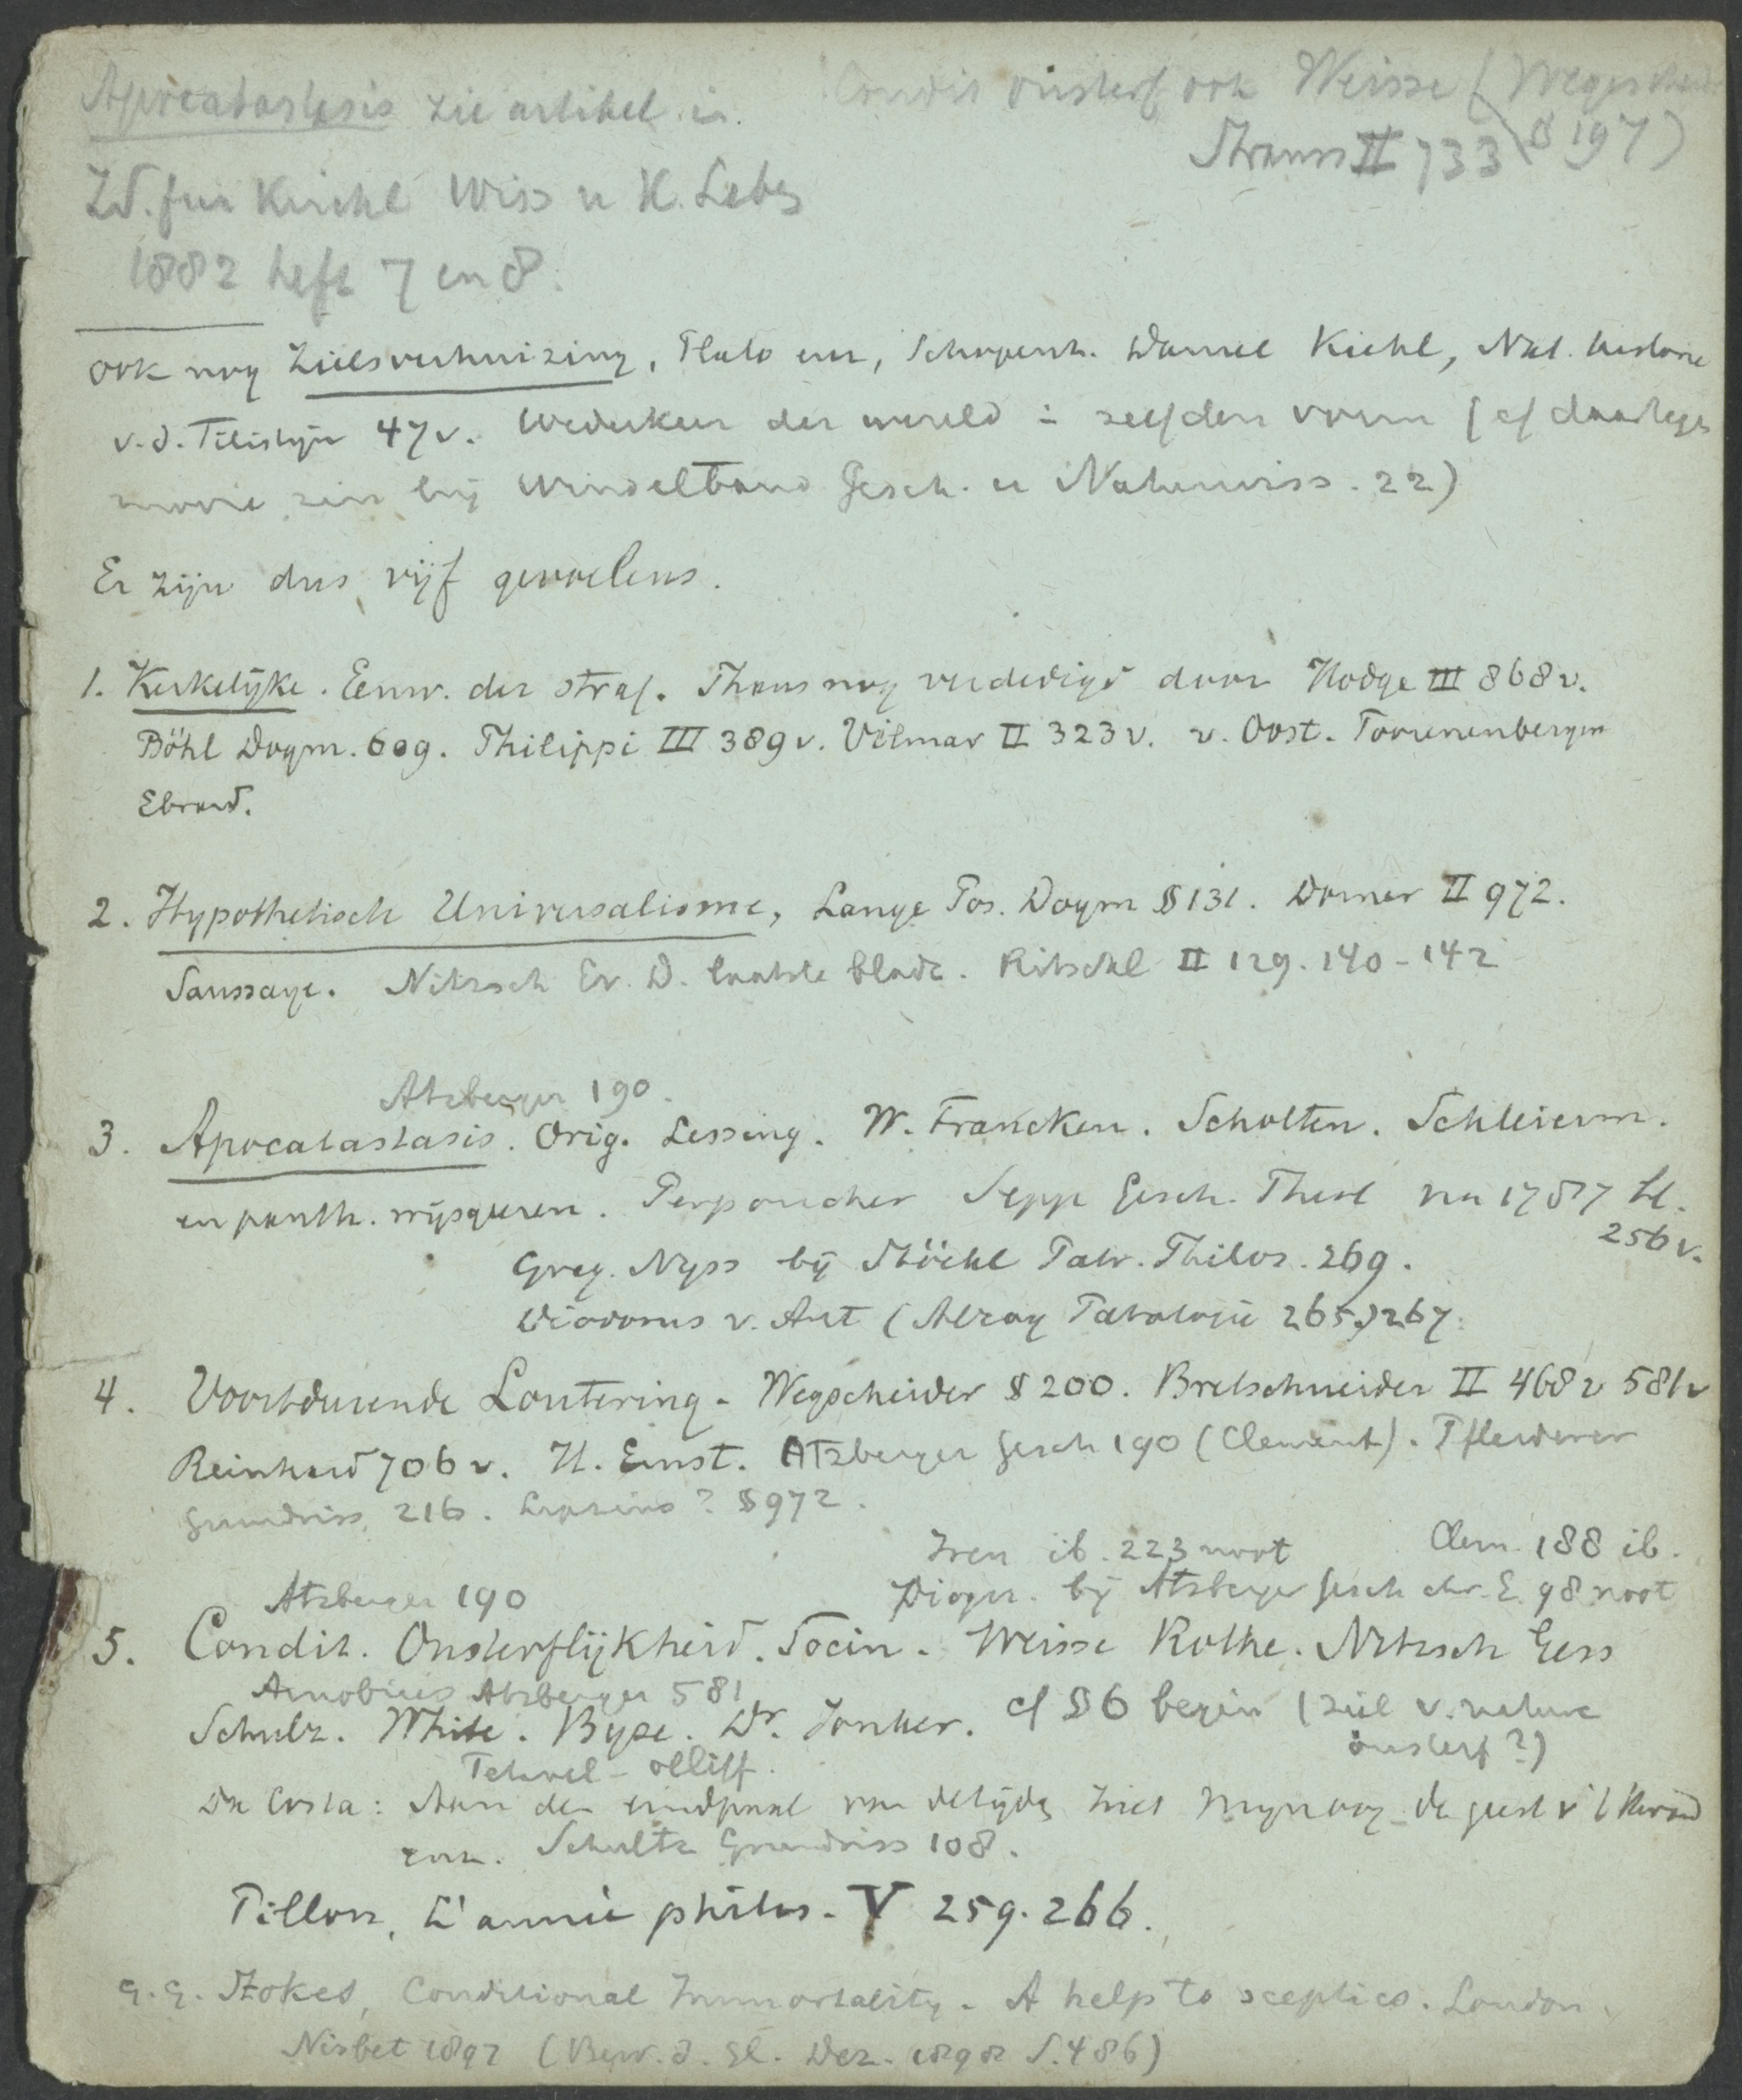 Apocatastasis zie artikel in.
Condit onsterf ook Weisse (Wegscheider
Strauss II 733 § 197)
Zt. fur Kirchl Wiss u K. Leben
1882 heft 7 en 8.
ook nog Zielsverhuizing, Plato enz, Schopenh. Daniel Kiehl, Nat. historie
v.d. Filistijn 47v. Wederkeer der wereld in zelfden vorm (cf daartegen
mooie zin bij Windelband Gesch. u Naturwiss. 22)
Er zijn dus vijf gevoelens.
1. Kerkelijke. Eeuw. der straf. Thans nog verdedigd door Hodge III 868v.
Böhl Dogm. 609. Philippi III 389v. Vilmar II 323v. v. Oost. Toorenenbergen
Ebrard.
2. Hypothetisch Universalisme, Lange Pos. Dogm § 131. Dorner II 972.
Saussaye. Nitzsch Ev. D. laatste bladz. Ritschl II 129. 140-142
Atzberger 190.
3. Apocatastasis. Orig. Lessing. W. Francken. Scholten. Schleierm.
en panth. wijsgeeren. Perponcher Sepp Gesch. Theol na 1787 bl.
256v.
Greg. Nyss bij Stöckl Patr. Philos. 269.
Diodorus v. Ant (Alzog Patrologie 265) 267.
4. Voortdurende Loutering. Wegscheider § 200. Bretschneider II 468v 581v
Reinhard 706v. H. Ernst. Atzberger Gesch 190 (Clement). Pfleiderer
Grundriss 216. Lipsius? § 972.
Iren ib. 223 noot Clem. 188 ib.
Atzberger 190 Diogn. bij Atzberger Gesch chr. E. 98 noot
5. Condit. Onsterflijkheid. Socin. Weisse Rothe. Nitzsch Gess
Arnobius Atzberger 581
Schulz. White. Byse. Dr. Jonker. cf § 6 begin (ziel v. nature
onsterf?)
Oliff.
Da Costa: Aan den eindpaal van de tijden ziet mijn oog de geest v 't kwaad
enz. Schultz Grundriss 108.
Pillon, L'année philos. V 259. 266.
G.G. Stokes, Conditional Immortality. A help to sceptics. London,
Nisbet 1897 (Bew. d. Gl. Dez. 1898 S. 486)